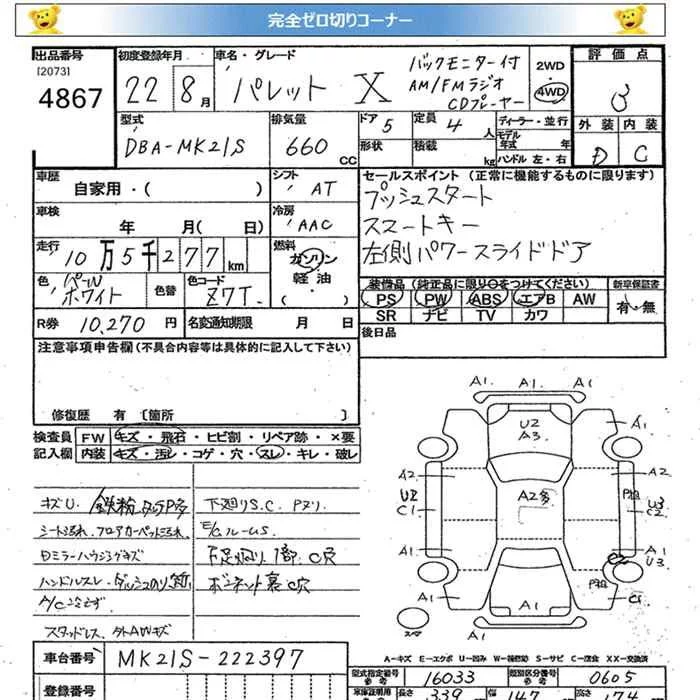 完全ゼロ切りコーナー
出品番号
[2073]
4867
初度登録年月
22 8月
車名・グレード
パレット X
バックモニター付
AM/FMラジオ
CDプレーヤー
2WD
4WD
評価点
3
外装 内装
D C
型式
DBA-MK21S
排気量
660 CC
ドア 5
形状
定員 4 人
積載 kg
ディーラー・並行
モデル年式 年
ハンドル 左・右
車歴
自家用・( )
シフト AT
車検
年 月( 日)
冷房 AAC
走行
10万5千277 km
燃料
ガソリン
軽油
・( )
色
パール
ホワイト
色替
色コード
Z7T
R券 10,270 円
名変通知期限 月 日
セールスポイント (正常に機能するものに限ります)
プッシュスタート
スマートキー
左側パワースライドドア
装備品 (純正品に限り○をつけてください)
PS PW ABS エアB AW
SR ナビ TV カワ
新車保証書
有・無
後日品
注意事項申告欄(不具合内容等は具体的に記入して下さい)
修復歴 有 [箇所 ]
検査員
記入欄
FW キズ・飛石・ヒビ割・リペア跡・×要
内装 キズ・汚レ・コゲ・穴・スレ・キレ・破レ
キズU. 鉄粉
下廻りS.C
シート汚れ、フロアカーペット汚れ
Dミラーハウジングキズ
ハンドルスレ・
ボンネット裏C穴
スタッドレス
A1 A1 A1
U2
A3
A1
A2
A2
A2多
U2
C1
U3
C2
A1
A1
C2
U3
A1
A1
A1
C1
A-キズ E-エクボ U-凹み W-補修跡 S-サビ C-腐食 XX-交換済
車台番号 MK21S-222397
登録番号
型式指定番号 参考 16033
類別区分番号 参考 0605
車庫証明用 長さ 339 幅 147 高さ 174